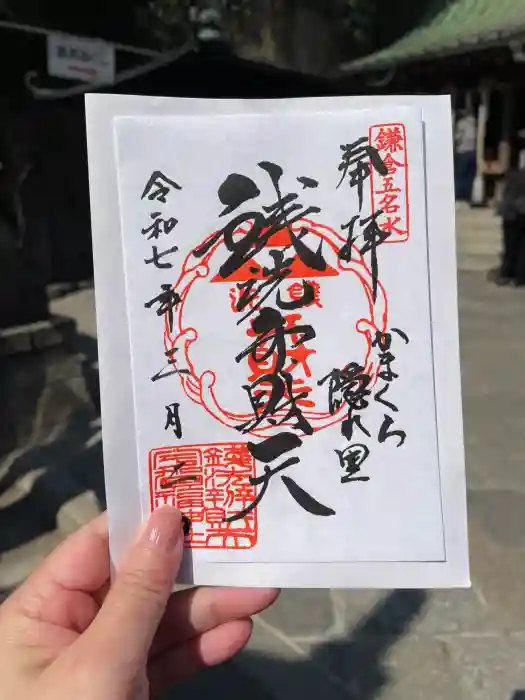 鎌倉五名水
奉拝
かまくら
隠れ里
銭洗弁財天
令和七年三月二